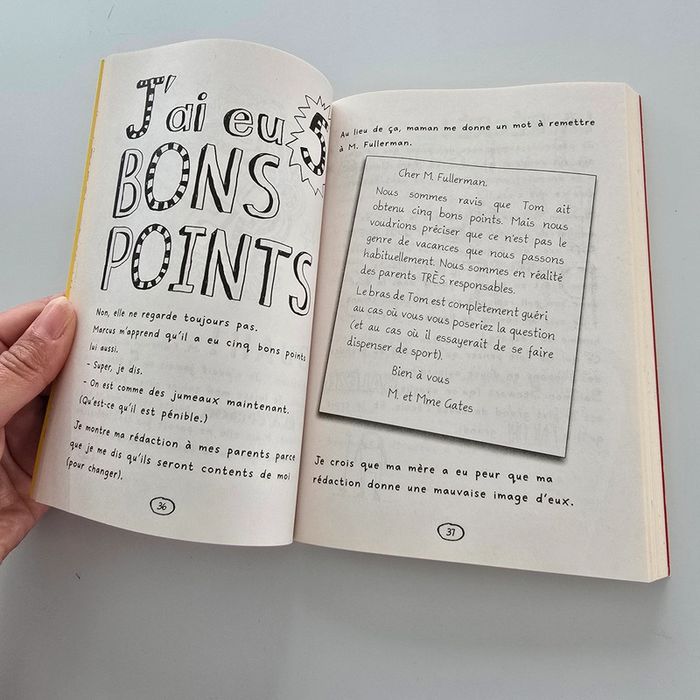 J'ai eu 5
BONS
POINTS
Non, elle ne regarde toujours pas.
Marcus m'apprend qu'il a eu cinq bons points
lui aussi.
- Super, je dis.
- On est comme des jumeaux maintenant.
(Qu'est-ce qu'il est pénible.)
Je montre ma rédaction à mes parents parce
que je me dis qu'ils seront contents de moi
(pour changer).
36
Au lieu de ça, maman me donne un mot à remettre
à M. Fullerman.
Cher M. Fullerman.
Nous sommes ravis que Tom ait
obtenu cinq bons points. Mais nous
voudrions préciser que ce n'est pas le
genre de vacances que nous passons
habituellement. Nous sommes en réalité
des parents TRÈS responsables.
Le bras de Tom est complètement guéri
au cas où vous vous poseriez la question
(et au cas où il essayerait de se faire
dispenser de sport).
Bien à vous
M. et Mme Gates
Je crois que ma mère a eu peur que ma
rédaction donne une mauvaise image d'eux.
37